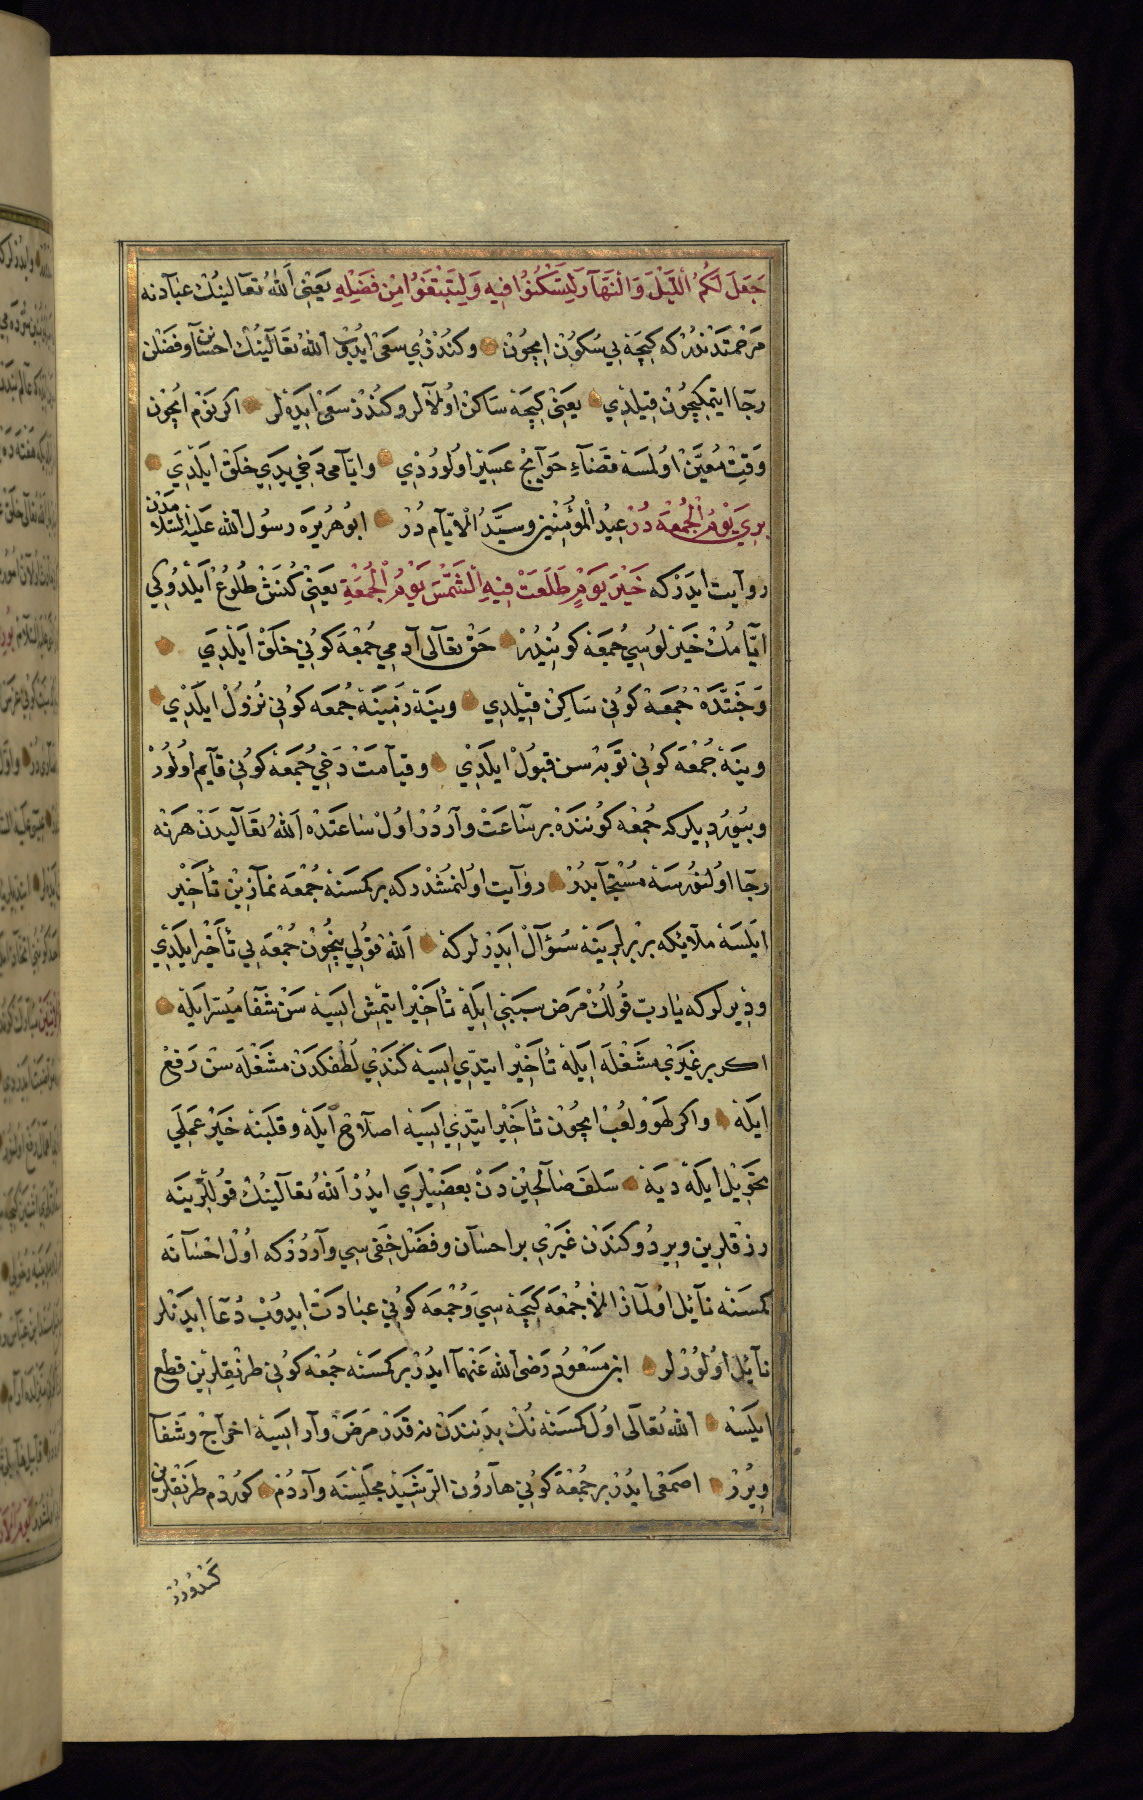 جَعَلَ لَكُمُ اللَّيْلَ وَالنَّهَارَ لِتَسْكُنُوا فِيهِ وَلِتَبْتَغُوا مِنْ فَضْلِهِ يعنى الله تعالينك عبادنه
مرحمتدندر كه كيجه يى سكون ايچون وكندزى سعى ايدوب الله تعالينك احسانن وفضلن
رجا ايتمكيچون قيلدى يعنى كيجه ساكن اولالر وكندز سعى ايده لر اكر نوم ايچون
وقت معين اولمسه قضاء حوايج عسير اولوردى وايامى دخى يدى خلق ايلدى
برى يوم الجمعه در عيد المؤمنين وسيد الايام در ابو هريره رسول الله عليه السلامدن
روايت ايدر كه خَيْرَ يَوْمٍ طَلَعَتْ فِيهِ الشَّمْسُ يَوْمُ الْجُمْعَةِ يعنى كنش طلوع ايلدوكى
ايامك خيرلوسى جمعه كونيدر حق تعالى آدمى جمعه كونى خلق ايلدى
وجنتده جمعه كونى ساكن قيلدى وينه زمينه جمعه كونى نزول ايلدى
وينه جمعه كونى توبه سن قبول ايلدى وقيامت دخى جمعه كونى قايم اولور
وبيورديلركه جمعه كوننده بر ساعت واردر اول ساعتده الله تعاليدن هرنه
رجا اولنورسه مستجابدر روايت اولنمشدركه بر كمسنه جمعه نمازين تأخير
ايلسه ملائكه بربرلرينه سؤال ايدرلركه الله قولى نيچون جمعه يى تأخير ايلدى
وديرلركه يارب قولك مرض سببى ايله تأخير ايتمش ايسه سن شفا ميسر ايله
اكر بر غيرى مشغله ايله تأخير ايتدى ايسه كندى لطفكدن مشغله سن رفع
ايله واكر لهو ولعب ايچون تأخير ايتدى ايسه اصلاح ايله وقلبنه خير عملى
تحويل ايله ديه سلف صالحين دن بعضيلرى ايدر الله تعالينك قوللرينه
رزقلرين ويردوكندن غيرى بر احسان وفضل خفى سى واردركه اول احسانه
كمسنه نايل اولماز الا جمعه كيجه سى وجمعه كونى عبادت ايدوب دعا ايدنلر
نايل اولورلر ابن مسعود رضى الله عنهما ايدر بر كمسنه جمعه كونى طرنقلرين قطع
ايلسه الله تعالى اول كمسنه نك بدنندن نه قدر مرض وار ايسه اخراج وشفا
ويرر اصمعى ايدر بر جمعه كونى هارون الرشيد مجلسنه واردم كوردم طرنقلرين
كندوزر